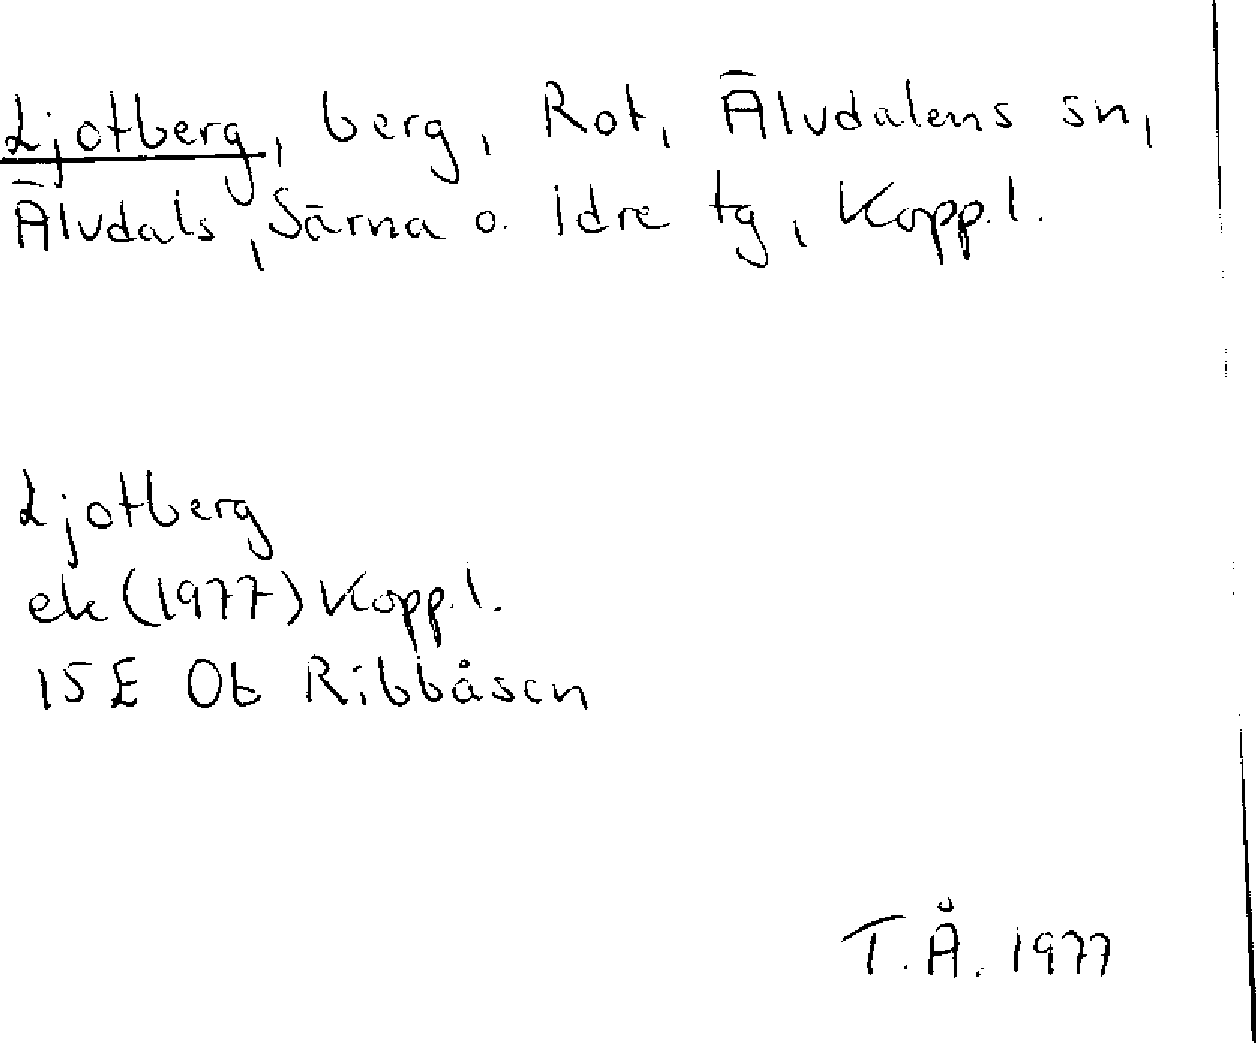 Ljotberg, berg, Rot, Älvdalens sn,
Älvdals, Särna o. Idre tg, Kopp.l.
Ljotberg
ek (1977) Kopp.l.
15E 0b Ribbåsen
T.Å. 1977